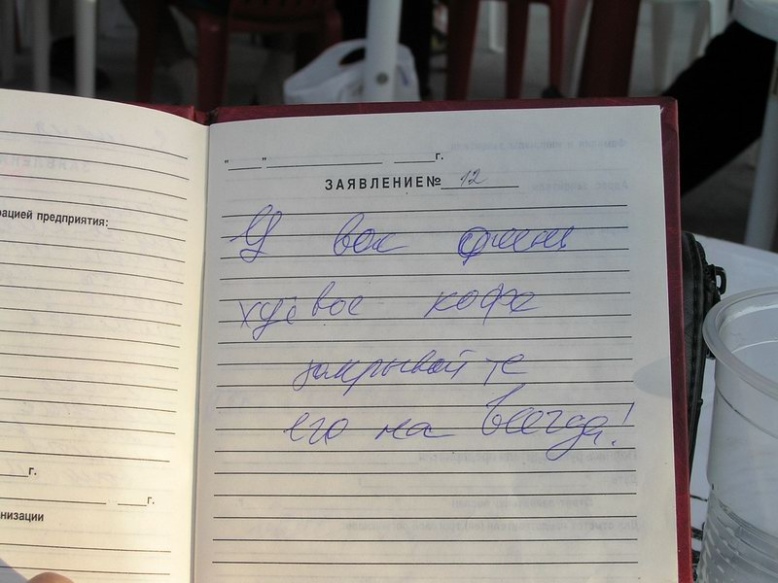 рацией предприятия:
г.
г.
низации
"    "            г.
ЗАЯВЛЕНИЕ № 12
У вас очень
хуёвое кофе
закрывайте
его на всегда!